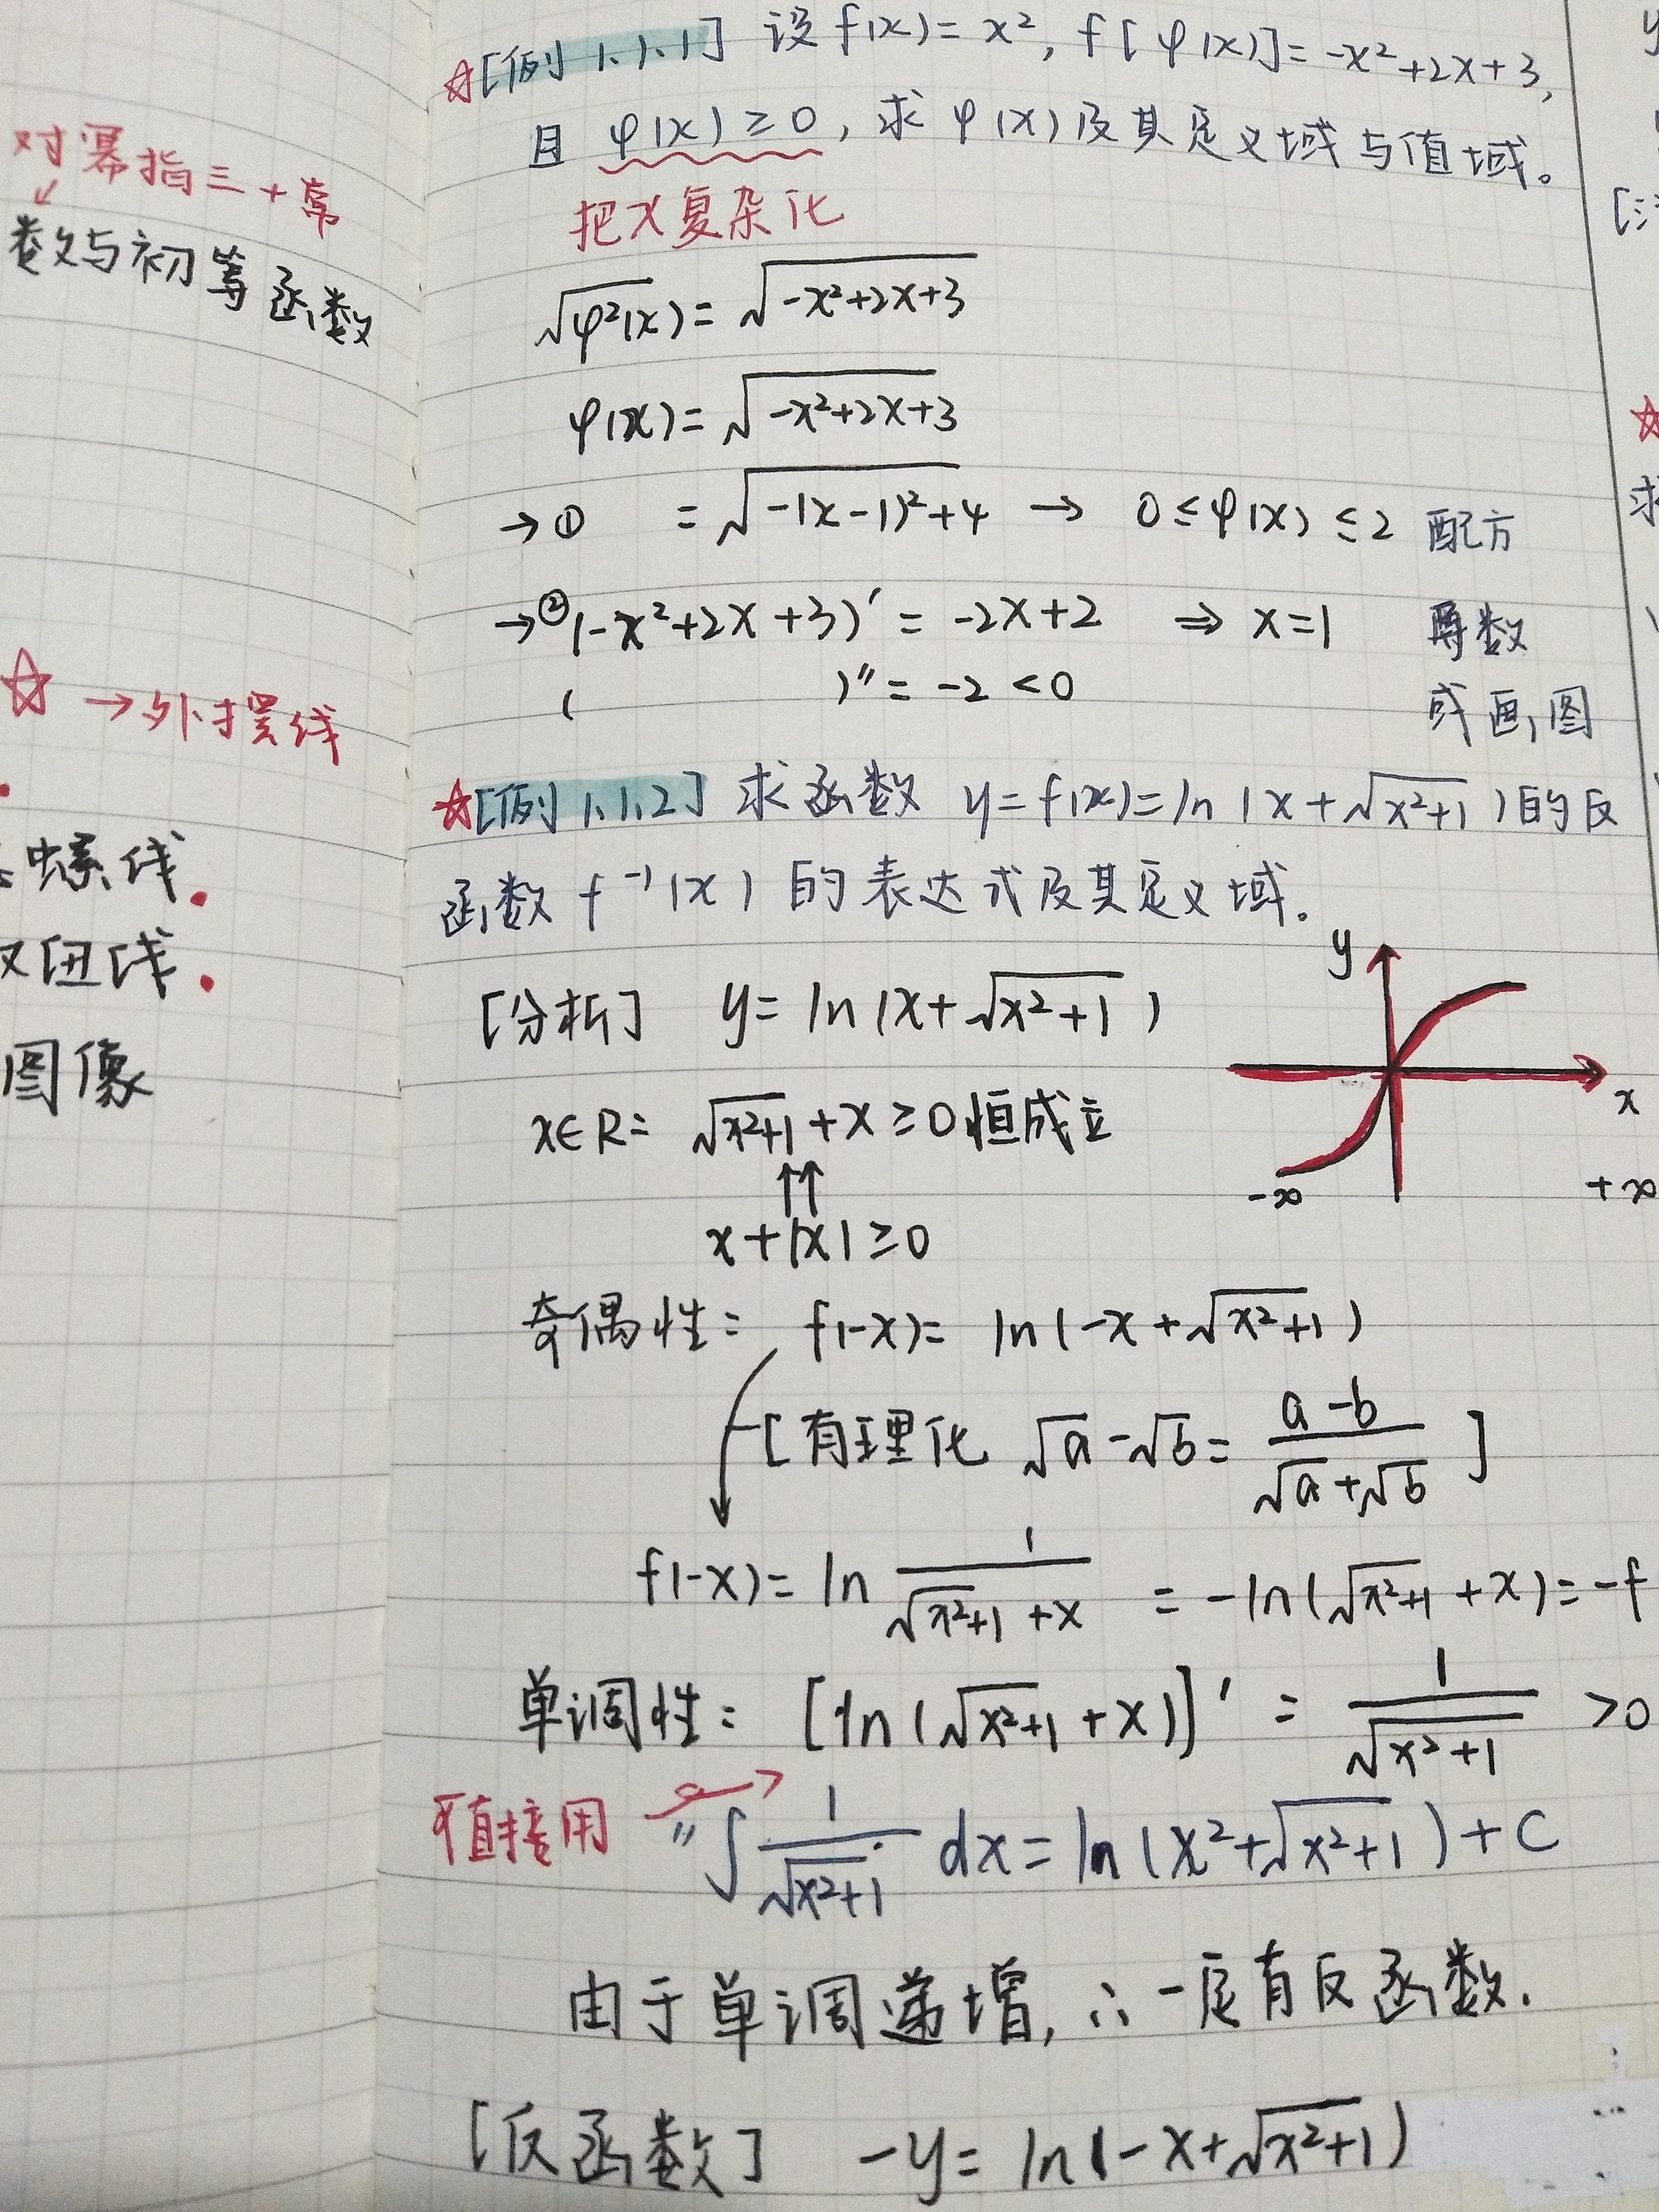 对幂指三+常
数与初等函数
☆→外摆线
螺线.
双纽线.
图像
☆[例1.1.1] 设f(x)=x², f[φ(x)]=-x²+2x+3,
且 φ(x)≥0, 求φ(x)及其定义域与值域。
把x复杂化
√φ²(x)=√-x²+2x+3
φ(x)=√-x²+2x+3
→① =√-(x-1)²+4 → 0≤φ(x)≤2 配方
→②(-x²+2x+3)′=-2x+2 ⇒ x=1 导数
( )″=-2<0 或画图
☆[例1.1.2] 求函数 y=f(x)=ln(x+√x²+1)的反
函数f⁻¹(x)的表达式及其定义域。
y
[分析] y=ln(x+√x²+1)
x
x∈R: √x²+1+x≥0恒成立
-∞ +∞
↑↑
x+|x|≥0
奇偶性: f(-x)=ln(-x+√x²+1)
[有理化 √a-√b=(a-b)/(√a+√b)]
f(-x)=ln 1/(√x²+1+x) =-ln(√x²+1+x)=-f
单调性: [ln(√x²+1+x)]′=1/√x²+1 >0
可直接用 "∫1/√x²+1 dx=ln(x²+√x²+1)+C
由于单调递增,∴一定有反函数.
[反函数] -y=ln(-x+√x²+1)